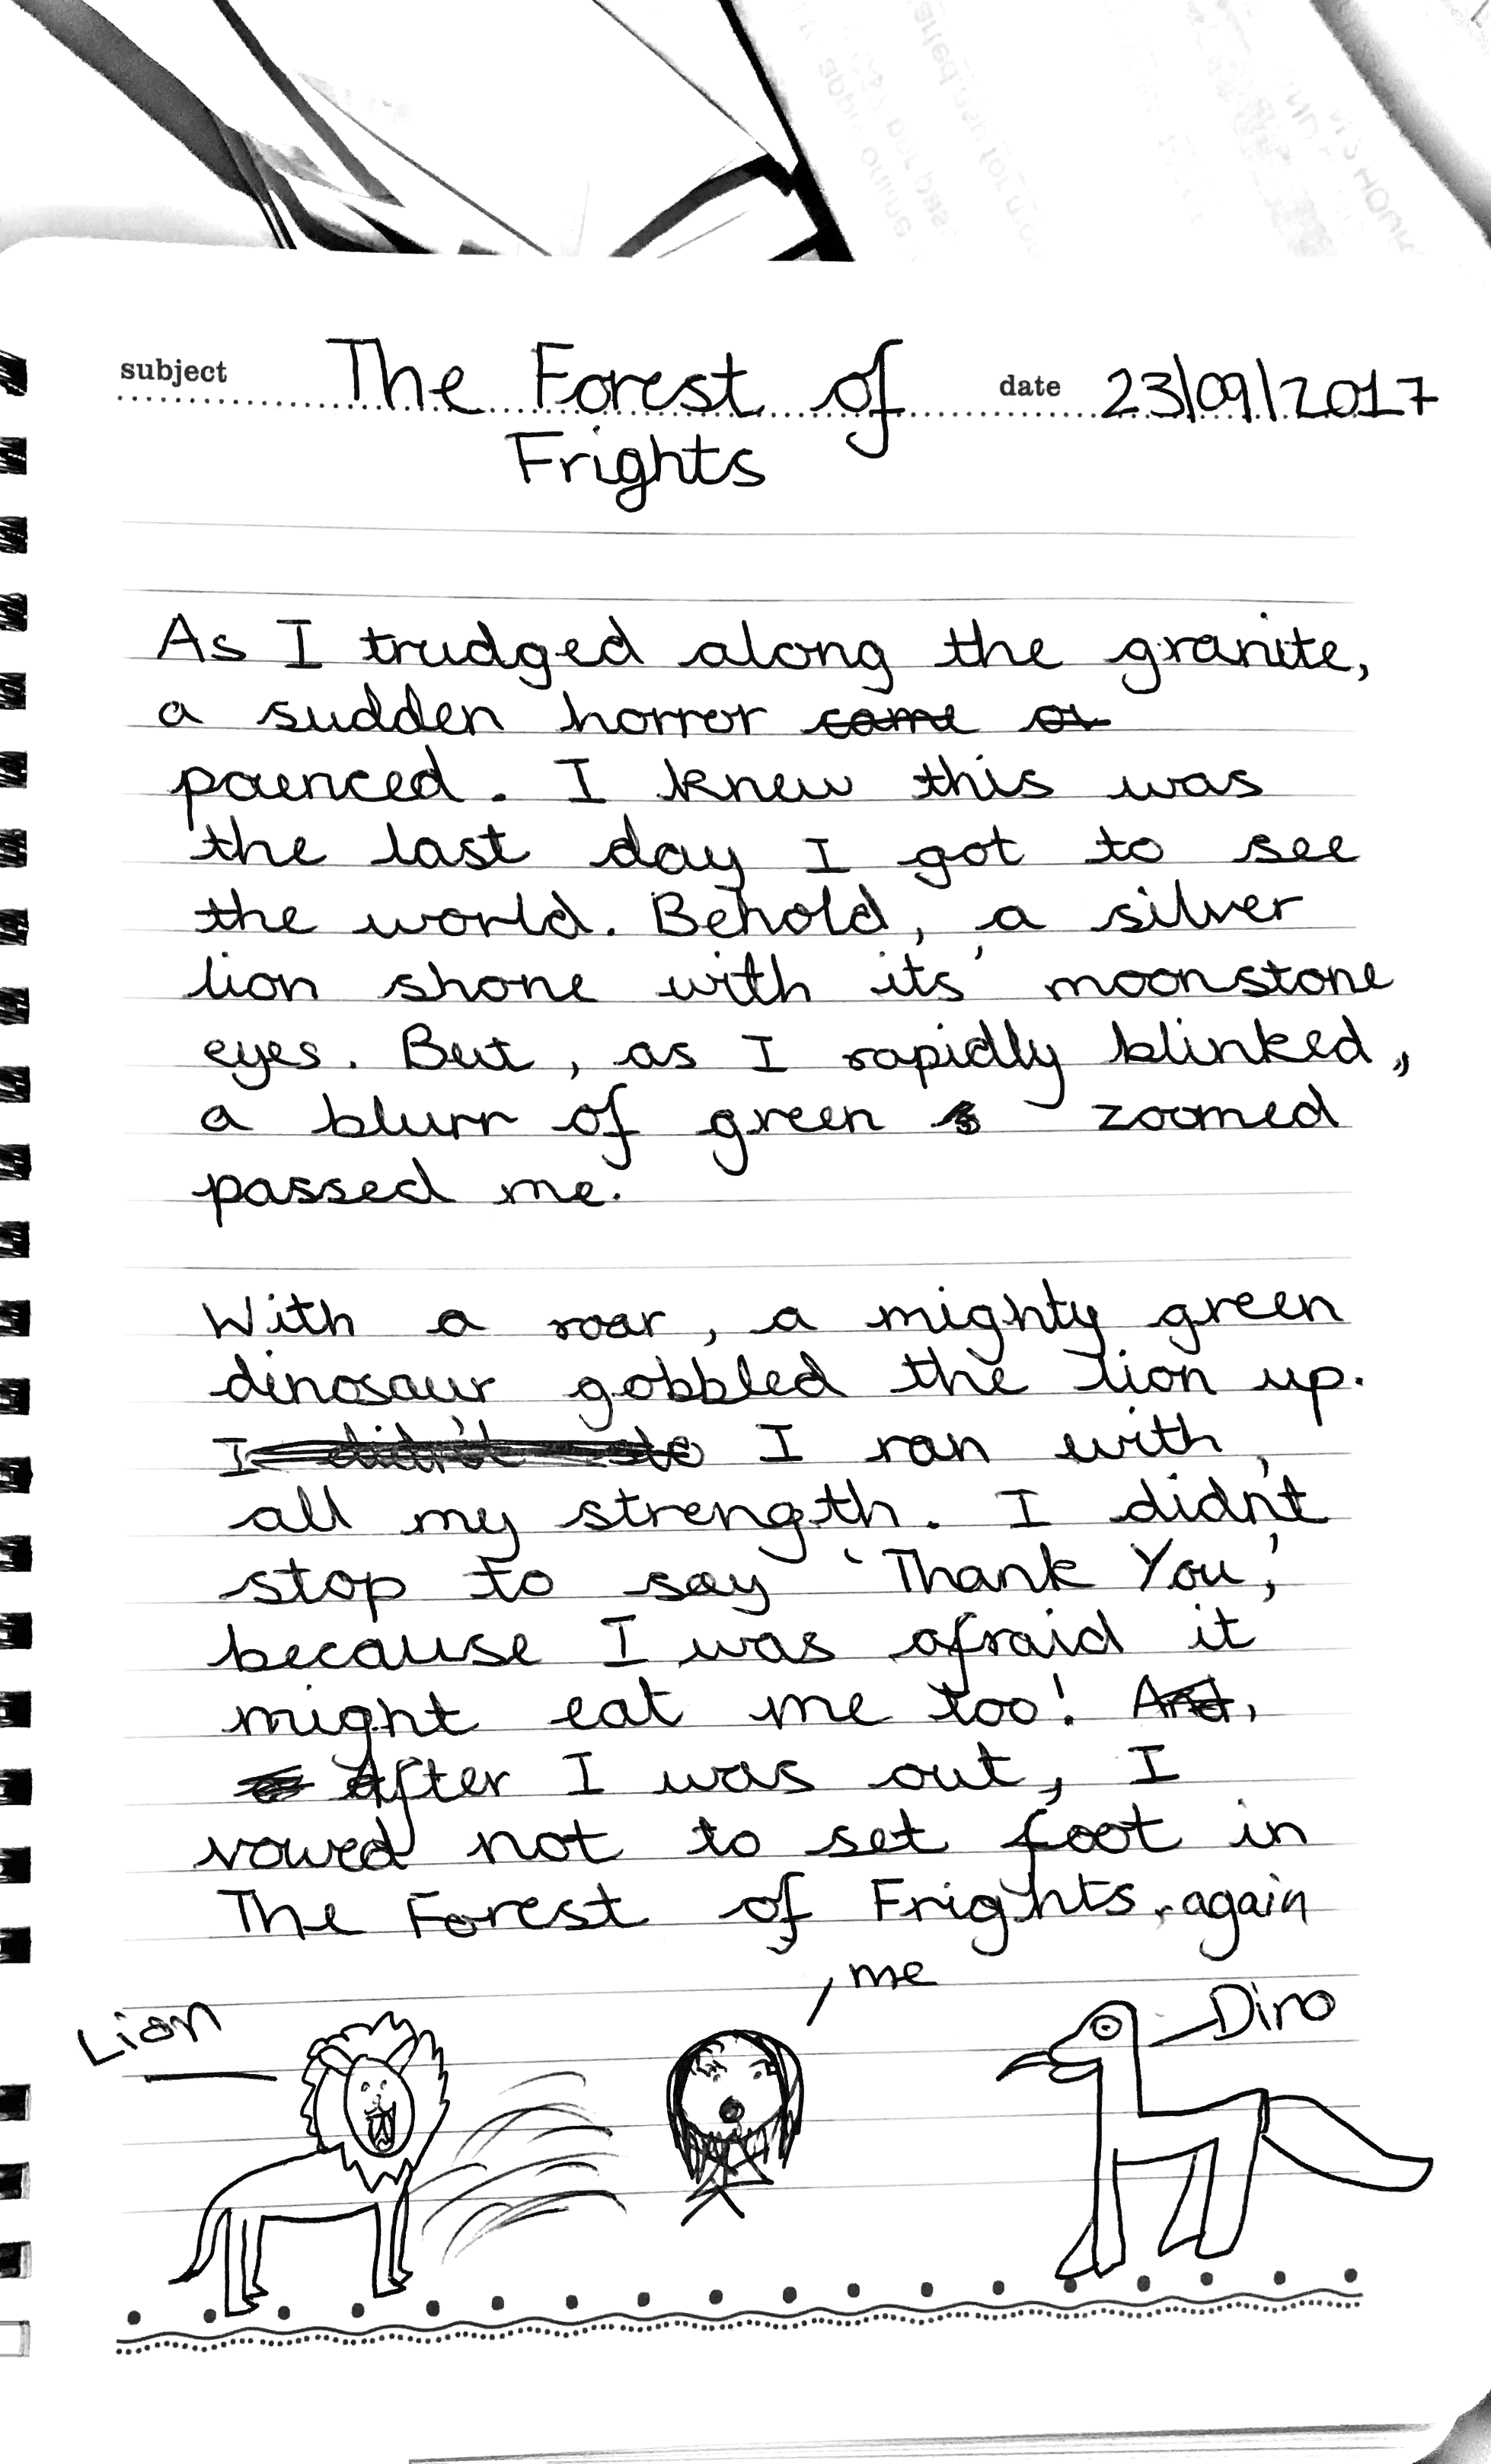 subject The Forest of date 23/09/2017
Frights
As I trudged along the granite,
a sudden horror came
paenced. I knew this was
the last day I got to see
the world. Behold, a silver
lion shone with its' moonstone
eyes. But, as I rapidly blinked,
a blurr of green zoomed
passed me.
With a roar, a mighty green
dinosaur gobbled the lion up.
I didn't sto I ran with
all my strength. I didn't
stop to say 'Thank You,'
because I was afraid it
might eat me too! And,
After I was out, I
vowed not to set foot in
The Forest of Frights. again
me
Lion
Dino